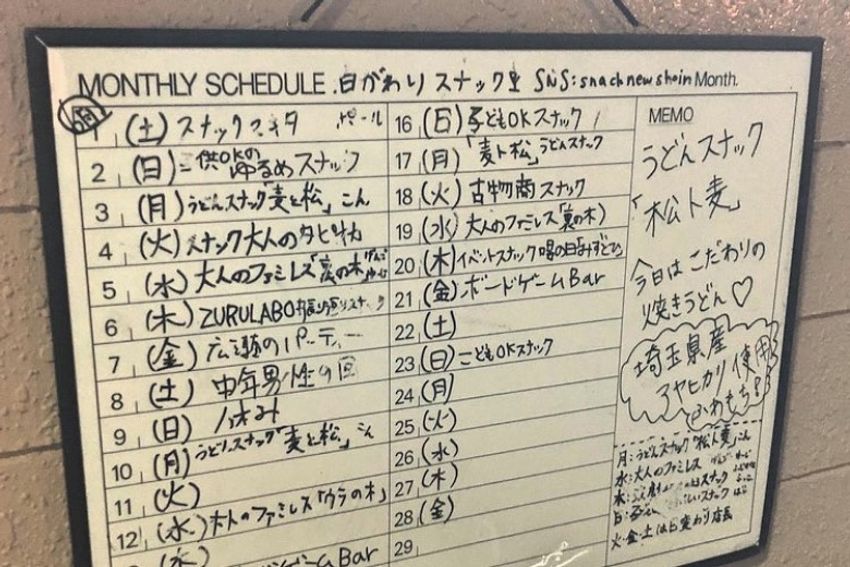 MONTHLY SCHEDULE 日がわり スナック堂 SNS: snack new shoin Month.
1 (土) スナックマキタ
2 (日) 供OKの ゆるめスナック
3 (月) うどんスナック「麦と松」こん
4 (火) スナック大人のタピオカ
5 (水) 大人のファミレス「裏の木」
6 (木) ZURULABO
7 (金) パーティー
8 (土) 中年男性の回
9 (日) 休み
10 (月) うどんスナック「麦と松」こん
11 (火)
12 (水) 大人のファミレス「ウラの木」
ゲームBar
16 (日) 子どもOKスナック
17 (月) 「麦ト松」うどんスナック
18 (火) 古物商スナック
19 (水) 大人のファミレス「裏の木」
20 (木) イベントスナック
21 (金) ボードゲームBar
22 (土)
23 (日) こどもOKスナック
24 (月)
25 (火)
26 (水)
27 (木)
28 (金)
29
MEMO
うどんスナック
「松ト麦」
今日は こだわりの
焼きうどん♡
埼玉県産
アヤヒカリ使用
月:うどんスナック「松ト麦」こん
水:大人のファミレス
火・金・土は日変わり店長